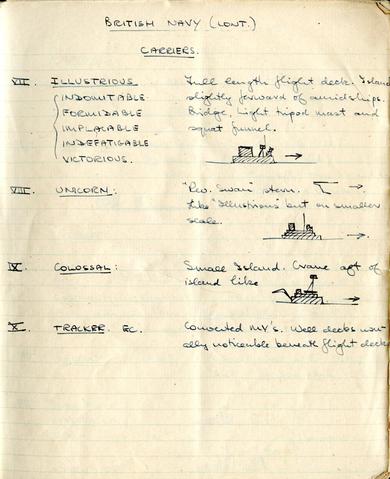 BRITISH NAVY (CONT.)
CARRIERS.
VII. ILLUSTRIOUS Full length flight deck. Island
INDOMITABLE slightly forward of amidships
FORMIDABLE Bridge, Light tripod mast and
IMPLACABLE squat funnel.
INDEFATIGABLE
VICTORIOUS.
VIII. UNICORN: "Rev. Swan" stern.
Like "Illustrious" but on smaller
scale.
IX. COLOSSAL: Small Island. Crane aft of
island like
X. TRACKER. EC. Converted MV's. Well decks usu-
ally noticeable beneath flight deck